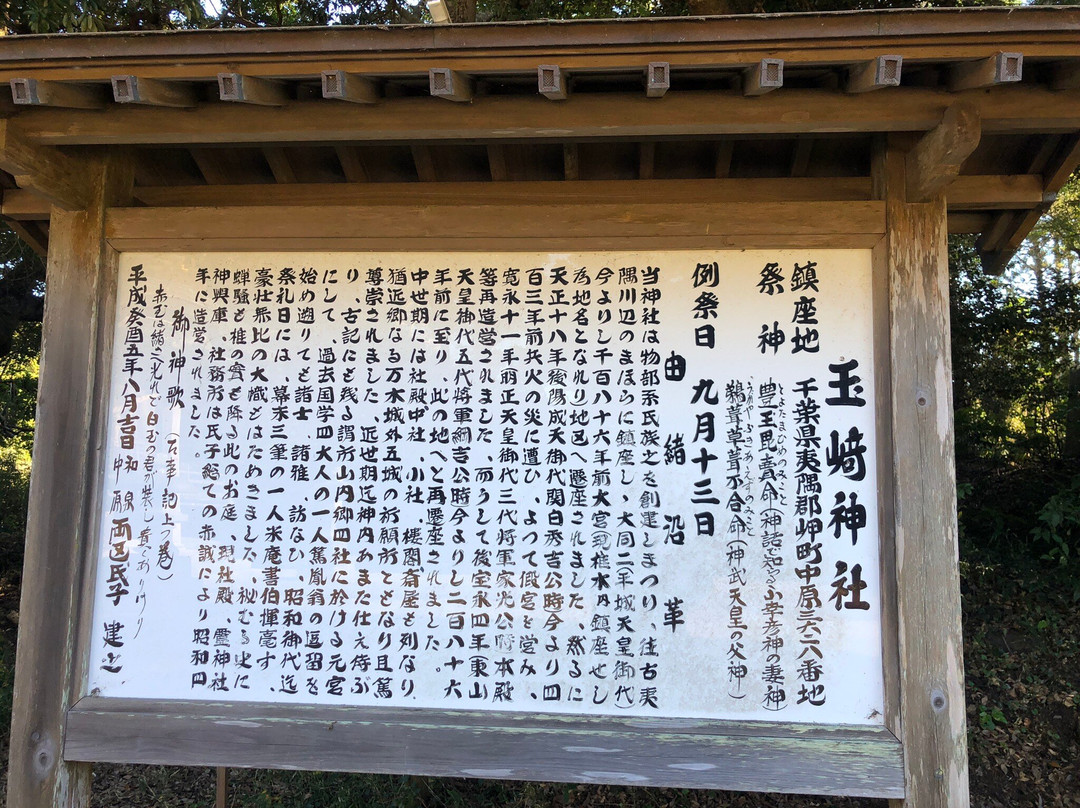 玉﨑神社
鎮座地 千葉県夷隅郡岬町中原三六六番地
祭神 豊玉毘賣命(神話で知る山幸彦神の妻神)
とよたまひめのみこと
鵜葺草葺不合命(神武天皇の父神)
うがや・ふきあえずのみこと
例祭日 九月十三日
由緒沿革
当神社は物部系氏族之を創建しまつり、往古夷
隅川辺のまほらに鎮座し、大同二(平城天皇御代)
今よりし千百八十六年前大宮現椎木内鎮座せし
為地名となれり地区へ遷座されました、然るに
天正十八年後陽成天御代関白秀吉公時今より四
百三年前兵火の災に遭ひ、よって假宮を営み、
寛永十一年明正天皇御代三代将軍家光公時本殿
等再造営されました、而うして後宝永四年東山
天皇御代五代将軍綱吉公時今よりし二百八十六
年前に至り、此の地へと再遷座されました。
中世期には社殿中、小社、楼閣斎屋も列なり、
猶近郷なる万木城外五城の祈願所ともなり且篤
尊崇されました、近世期迄神内あまた仕え侍ぶ
り、古記にも残る謂所山内郷四社に於ける元宮
にして、過去国学四大人の一人篤胤翁の逗留を
始め遡りても諸士、諸雅、訪なひ、昭和御代迄
祭礼日には、幕末三筆の一人米庵書伯揮毫す、
豪壮無比の大幟をはためきました、秘むる史に
蝉騒も椎の實も降る此のお庭、現社殿、霊神社
神輿庫、社務所は氏子総ての赤誠により昭和四
年に造営されました。
御神歌(古事記上つ巻)
赤玉は緒さへ光れど白玉の君が装し貴くありけり
平成癸酉五年八月吉日 和泉 中原 両区氏子 建之